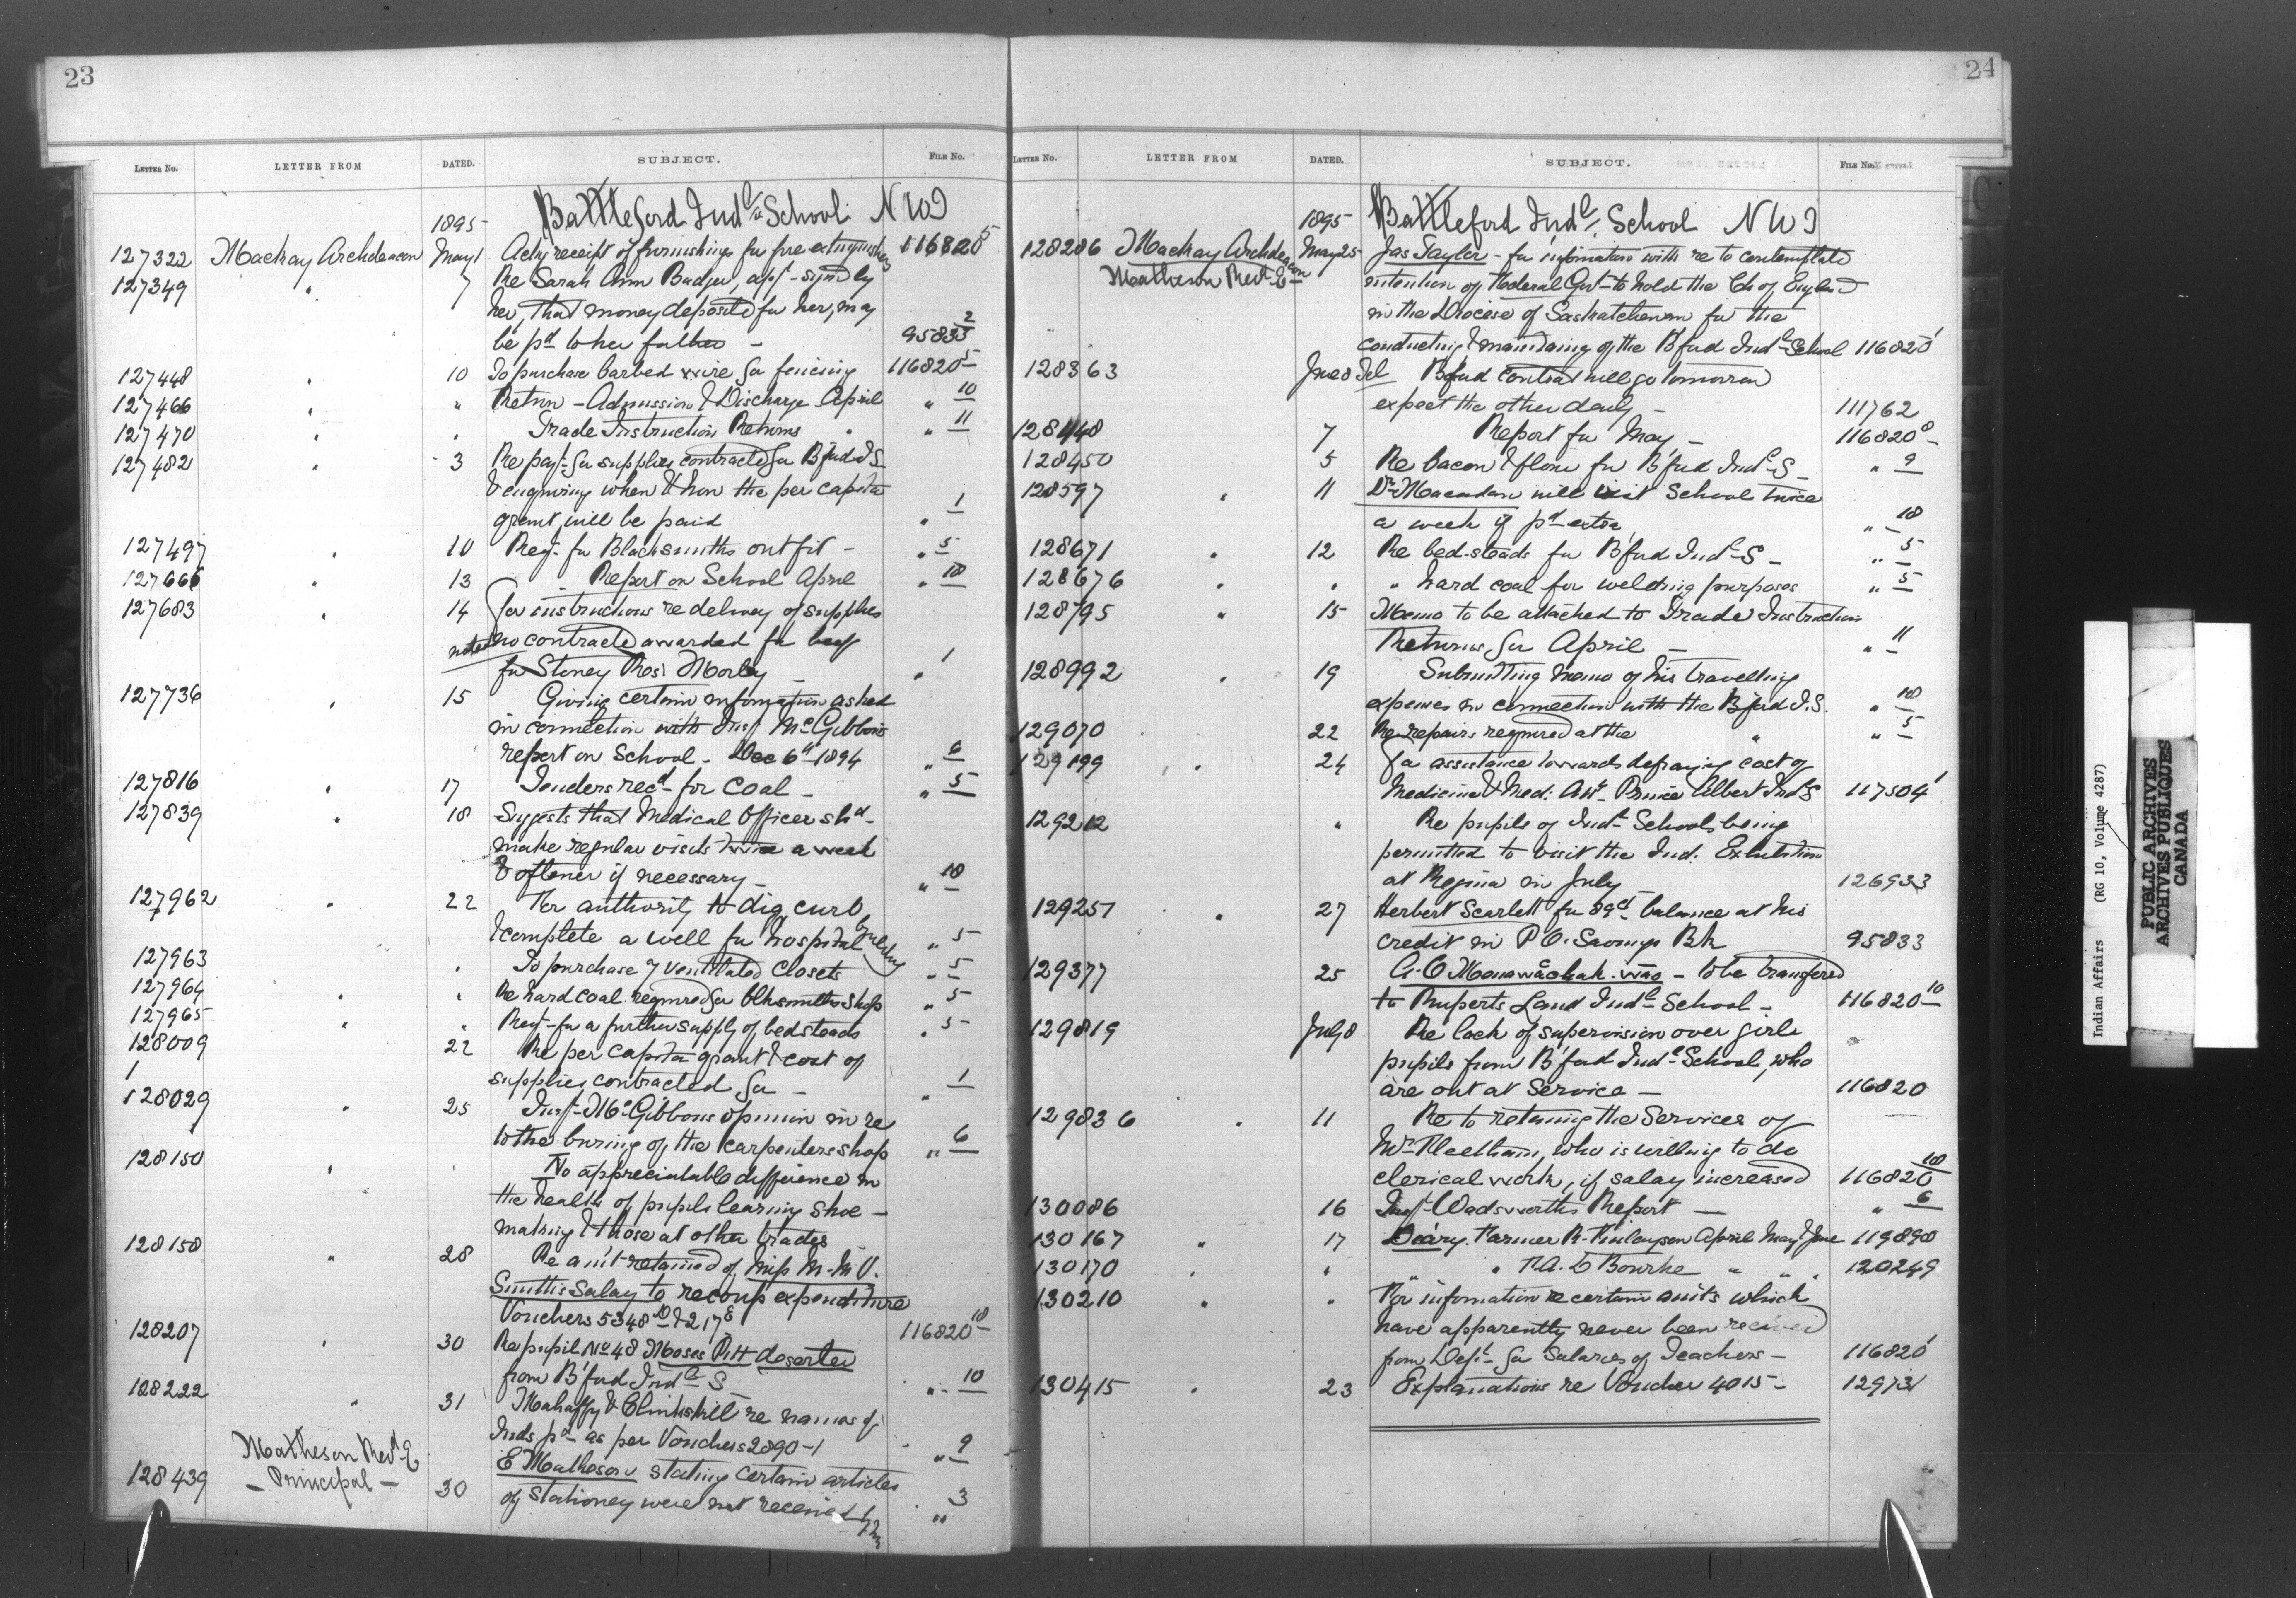 23
LETTER NO. LETTER FROM DATED. SUBJECT. FILE No.
Battleford Indl School N W T
1895
127322 Mackay Archdeacon May 1 Ackg receipt of furnishings for fire extinguishers 116820-5
127349 " 7 Re Sarah Ann Badger, appn signed by
her, that money deposited for her, may
be pd to her father - 95833-2
127448 " 10 To purchase barbed wire for fencing 116820-5
127466 " " Return - Admission & Discharge April " 10
127470 " " Trade Instruction Returns " " 11
127482 " 3 Re payt for supplies contracted for B'ford I S
& enquiring when & how the per capita
grant will be paid " 1
127497 " 10 Reqn for Blacksmiths outfit - " 5
127666 " 13 Report on School April " 10
127683 " 14 for instructions re delivery of supplies
noted no contracts awarded for beef
for Stoney Res: Morley - " 1
127736 " 15 Giving certain information asked
in connection with Insp McGibbons
report on School - Dec 6th 1894 " 6
127816 " 17 Tenders recd for Coal - " 5
127839 " 18 Suggests that Medical Officer shd
make regular visits twice a week
& oftener if necessary - " 10
127962 " 22 For authority to dig, curb,
& complete a well for hospital " 5
127963 " To purchase 7 ventilated Closets " 5
127964 " " Re hard coal required for blksmiths shop " 5
127965 " " Reqn for a further supply of bedsteads " 5
128009 22 Re per capita grant & cost of
1 supplies contracted for - " 1
128029 " 25 Insp McGibbons opinion in re
to the burning of the carpenters shop " 6
128150 " No appreciatable difference in
the health of pupils learning shoe-
making & those at other trades
128158 " 28 Re amt retained of Miss M. M. V.
Smith's Salary to recoup expenditure
Vouchers 5348 & 217 116820-10
128207 " 30 Re pupil No 48 Moses Pitt deserter
from B'ford Indl S " 10
128222 " 31 Mahaffy & Clinkskill re names of
Inds pd as per Vouchers 2890-1 " 9
Matheson Revd E
- Principal -
128439 30 E Matheson stating certain articles
of stationery were not received " 3
24
LETTER NO. LETTER FROM DATED. SUBJECT. FILE No.
Battleford Indl School N W T
1895
128286 Mackay Archdeacon May 25 Jas Taylor - for information with re to contemplated
Matheson Revd E intention of Federal Govt to hold the Ch of England
in the Diocese of Saskatchewan for the
conducting & maintaining of the B'ford Indl School 116820-1
128363 June 8 Tel B'ford contract will go tomorrow
expect the other daily - 111762
128448 7 Report for May - 116820-8
128450 5 Re bacon & flour for B'ford Indl S - " 9
128597 " 11 Dr Macadam will visit School twice
a week if pd extra " 10
128671 " 12 Re bed-steads for B'ford Indl S - " 5
128676 " " " hard coal for welding purposes " 5
128795 " 15 Memo to be attached to Trade Instruction
Returns for April - " 11
128992 " 19 Submitting memo of his travelling
expenses in connection with the B'ford I.S. " 10
129070 22 Re repairs required at the " " 5
129199 " 24 for assistance towards defraying cost of
Medicine & Med: Att. Prince Albert Indl S 117504-1
129212 " Re pupils of Indl Schools being
permitted to visit the Ind. Exhibition
at Regina in July 126933
129257 " 27 Herbert Scarlett for 89cts balance at his
credit in P O. Savings Bk 95833
129377 25 to be transfered
to Ruperts Land Indl School - 116820-10
129819 July 8 Re lack of supervision over girls
pupils from B'ford Indl School, who
are out at Service - 116820
129836 " 11 Re to retaining the Services of
Mr who is willing to do
clerical work, if salary increased 116820-10
130086 16 Insp Wadsworths Report - " 6
130167 " 17 Diary. Farmer R. Finlayson April May & June 119890
130170 " " " " Bourke " " " 120249
130210 " " For information re certain amts which
have apparently never been received
from Dept for Salaries of Teachers - 116820-1
130415 " 23 Explanations re Voucher 4015 - 12973
Indian Affairs (RG 10, Volume 4287)
PUBLIC ARCHIVES
ARCHIVES PUBLIQUES
CANADA